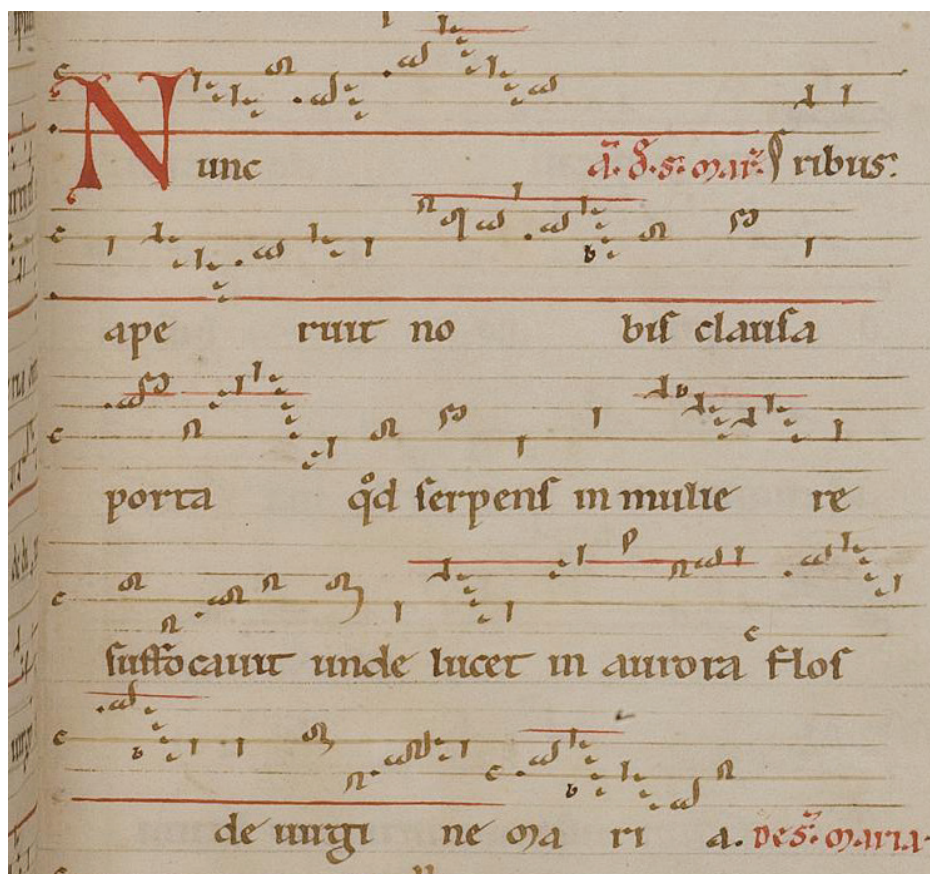 Nunc A. D. S. Mar. ribus.
ape ruit no bis clausa
porta qd serpens in mulie re
suffocauit unde lucet in aurora flos
de uirgi ne ma ri a. De S. Maria